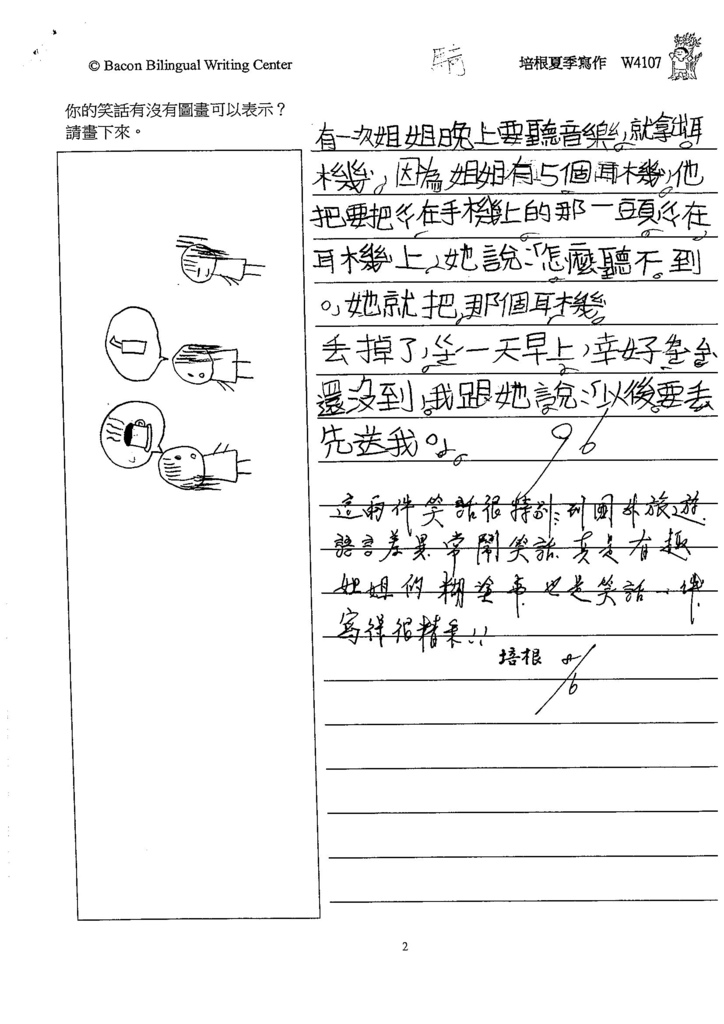 © Bacon Bilingual Writing Center
晴
培根夏季寫作 W4107
你的笑話有沒有圖畫可以表示？
請畫下來。
有一次姐姐晚上要聽音樂，就拿出耳
機，因為姐姐有5個耳機，他
把要把在手機上的那一頭在
耳機上，她說：「怎麼聽不到
。」她就把那個耳機
丟掉了，一天早上，幸好
還沒到，我跟她說：「以後要丟
先送我。」
96
這兩件笑話很特別：到國外旅遊
語言差異常鬧笑話．真是有趣
姐姐的糊塗事也是笑話一件
寫得很精采!!
培根 8/6
2